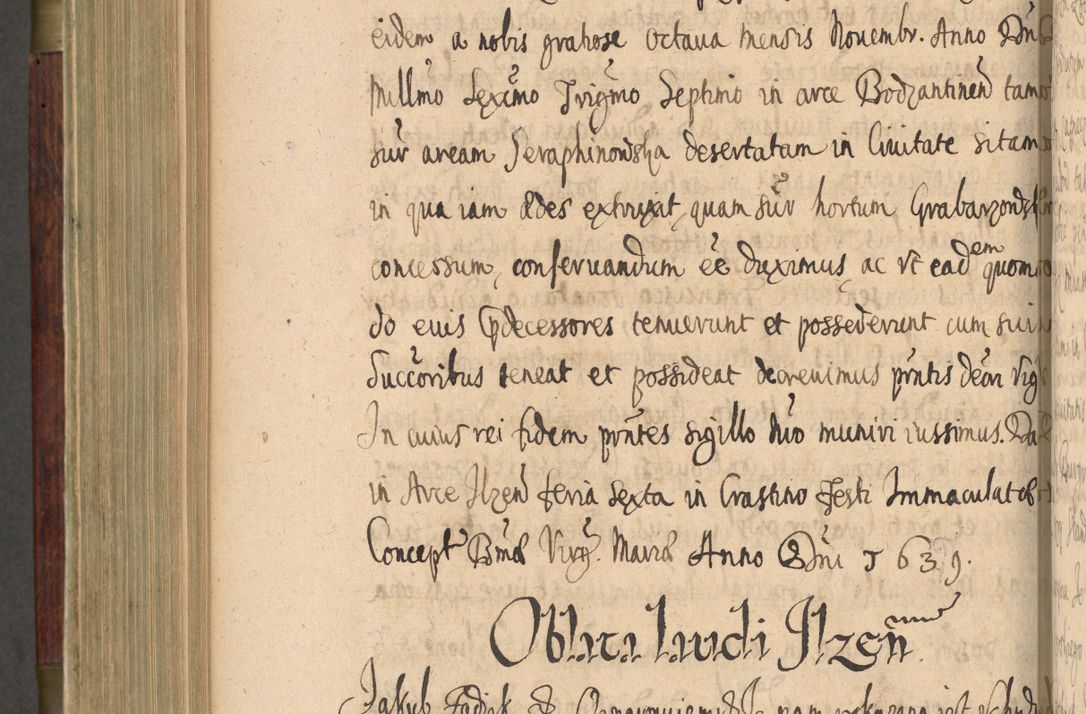 eidem a nobis gratiose Octaua mensis Nouembr. Anno Dnj
Millmo Sexcmo Trigmo Septimo in arce Bodzantinen tam
sur aream Seraphinowska desertatam in Ciuitate sitam
in qua iam ædes extruxit, quam sur hortum
concessum, conseruandum eē duximus, ac vt eadem quom
do euis Prdecessores tenuerunt et possederunt cum sui
Succoribus teneat et possideat decreuimus prntis decr Vig
In cuius rei fidem prntes sigillo nro muniri iussimus. Da
in Arce Ilzen feria Sexta in Crastino Festi Immaculat
Concept Bmæ Virg. Mariæ Anno Dni 1639.
Oblata laudi Ilzen
Jakub Zadzik